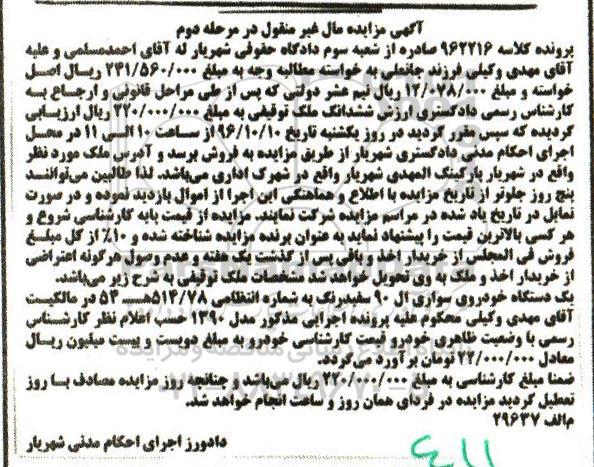 آگهی مزایده مال غیر منقول در مرحله دوم
پرونده کلاسه ۹۶۲۲۱۶ صادره از شعبه سوم دادگاه حقوقی شهریار له آقای احمدمسلمی و علیه
آقای مهدی وکیلی فرزند چانعلی به خواسته مطالبه وجه به مبلغ ۲۴۱/۵۶۰/۰۰۰ ریـال اصـل
خواسته و مبلغ ۱۲/۰۷۸/۰۰۰ ریال نیم عشر دولتی که پس از طی مراحل قانونی و ارجـاع بـه
کارشناس رسمی دادگستری ارزش ششدانگ ملک توقیفی به مبلغ ۲۲۰/۰۰۰/۰۰۰ ریال ارزیـابی
گردیده که سپس مقرر گردید در روز یکشنبه تاریخ ۹۶/۱۰/۱۰ از سـاعت ۱۰ الـی ۱۱ در محـل
اجرای احکام مدنی دادگستری شهریار از طریق مزایده به فروش برسد و آدرس ملک مورد نظر
واقع در شهریار پارکینگ المهدی شهریار واقع در شهرک اداری می‌باشد. لذا طالبین می‌تواننـد
پنج روز جلوتر از تاریخ مزایده با اطلاع و هماهنگی این اجرا از اموال بازدید نموده و در صورت
تمایل در تاریخ یاد شده در مراسم مزایده شرکت نمایند. مزایده از قیمت پایه کارشناسی شروع و
هر کسی بالاترین قیمت را پیشنهاد نماید به عنوان برنده مزایده شناخته شده و ۱۰٪ از کل مبلـغ
فروش فی المجلس از خریدار اخذ و باقی پس از گذشت یک هفته و عدم وصول هرگونه اعتراضی
از خریدار اخذ و ملک به وی تحویل خواهد شد مشخصات ملک توقیفی به شرح زیر می‌باشد.
یک دستگاه خودروی سواری ال ۹۰ سفیدرنگ به شماره انتظامی ۵۱۴/۷۸هـ ۵۴ در مالکیـت
آقای مهدی وکیلی محکوم علیه پرونده اجرایی مذکور مدل ۱۳۹۰ حسب اعلام نظر کارشـناس
رسمی با وضعیت ظاهری خودرو قیمت کارشناسی خودرو به مبلغ دویست و بیست میلیون ریـال
معادل ۲۲/۰۰۰/۰۰۰ تومان برآورد می‌گردد.
ضمنا مبلغ کارشناسی به مبلغ ۲۲۰/۰۰۰/۰۰۰ ریال می‌باشد و چنانچه روز مزایده مصادف بـا روز
تعطیل گردید مزایده در فردای همان روز و ساعت انجام خواهد شد.
م‌الف ۲۹۶۳۷
دادورز اجرای احکام مدنی شهریار